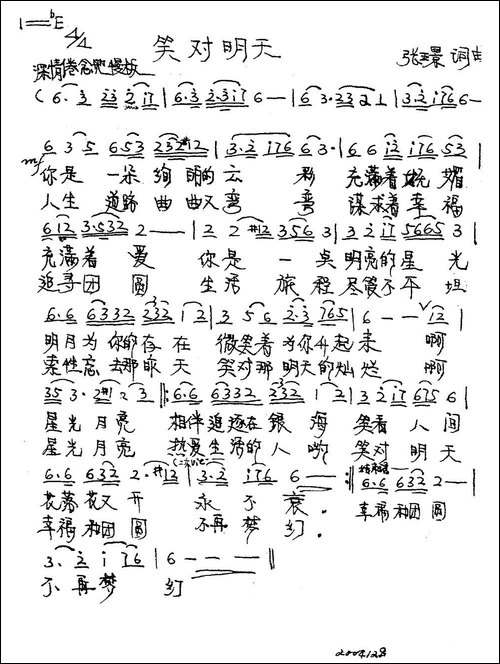 1=ᵇE 4/4
笑对明天
张玉景 词曲
深情倦念地 慢板
(6·3 23 2 i76 | 6·3 2·3i7 6— | 6 3·23 2 1 | 3·2 i76 6—
6 3 5 6 53 232#12 | 3·2 i76 6 3· | 6 6 i2 i76 53 |
mf
你是一朵绚明的云彩 充满着妩媚
人生道路曲曲又弯弯 谋求着幸福
612 3·532 2 —— | 2 2 #12 356 3 | 3 2 i7 5665 3 |
充满着爱 你是一点明亮的星光
追寻团圆 生活旅程尽管不平坦
6·6 6332 232 1 2 | 3 5 6 2·3 765 | 6 — — i2 |
明月为你的存在 微笑着为你升起来 啊
索性忘去那昨天 笑对那明天的灿烂 啊
35 3·2#1 2 3 ‖: 6·6 6332 232 1 2 | 3 2 i7 675 6 |
星光月亮 相伴追逐在银海 笑看人间
星光月亮 热爱生活的人哟 笑对明天
6·6 632 2·#12 | 3·2 i76 6 — :‖ 6·6 632 2— |
花落花又开 永不衰 幸福和团圆
幸福和团圆 不再梦幻。
3· 2 i i76 | 6 — — — ‖
不再梦幻
2004.12.8